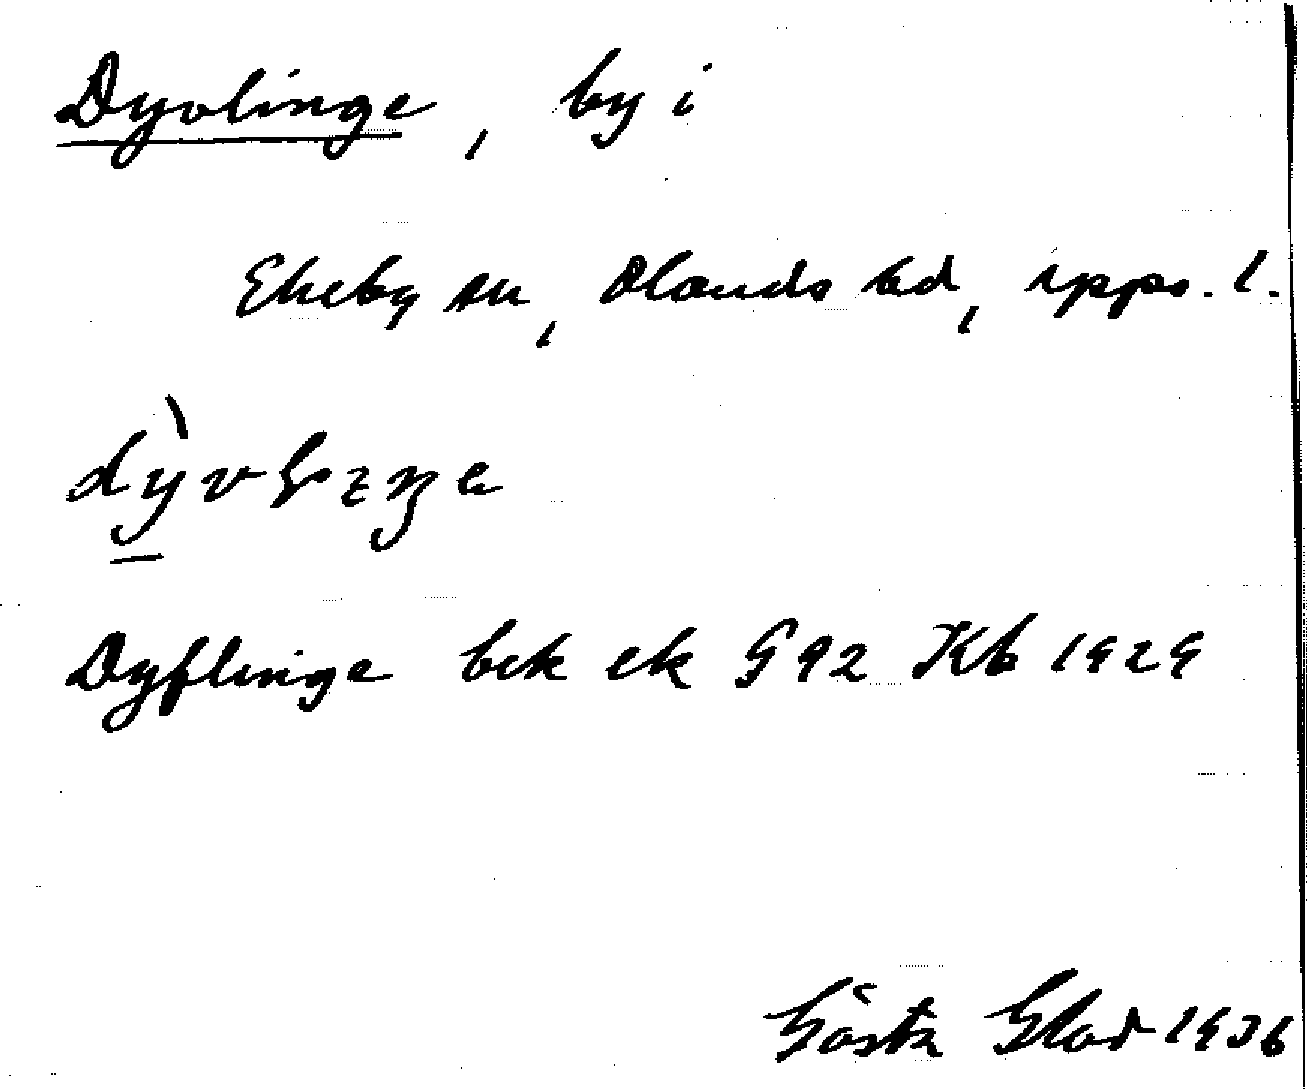 Dyvlinge, by i
Ekeby sn, Olands hd, Upps. l.
Dyflinge bek ek G 92 Kb 1929
Gösta Glad 1936